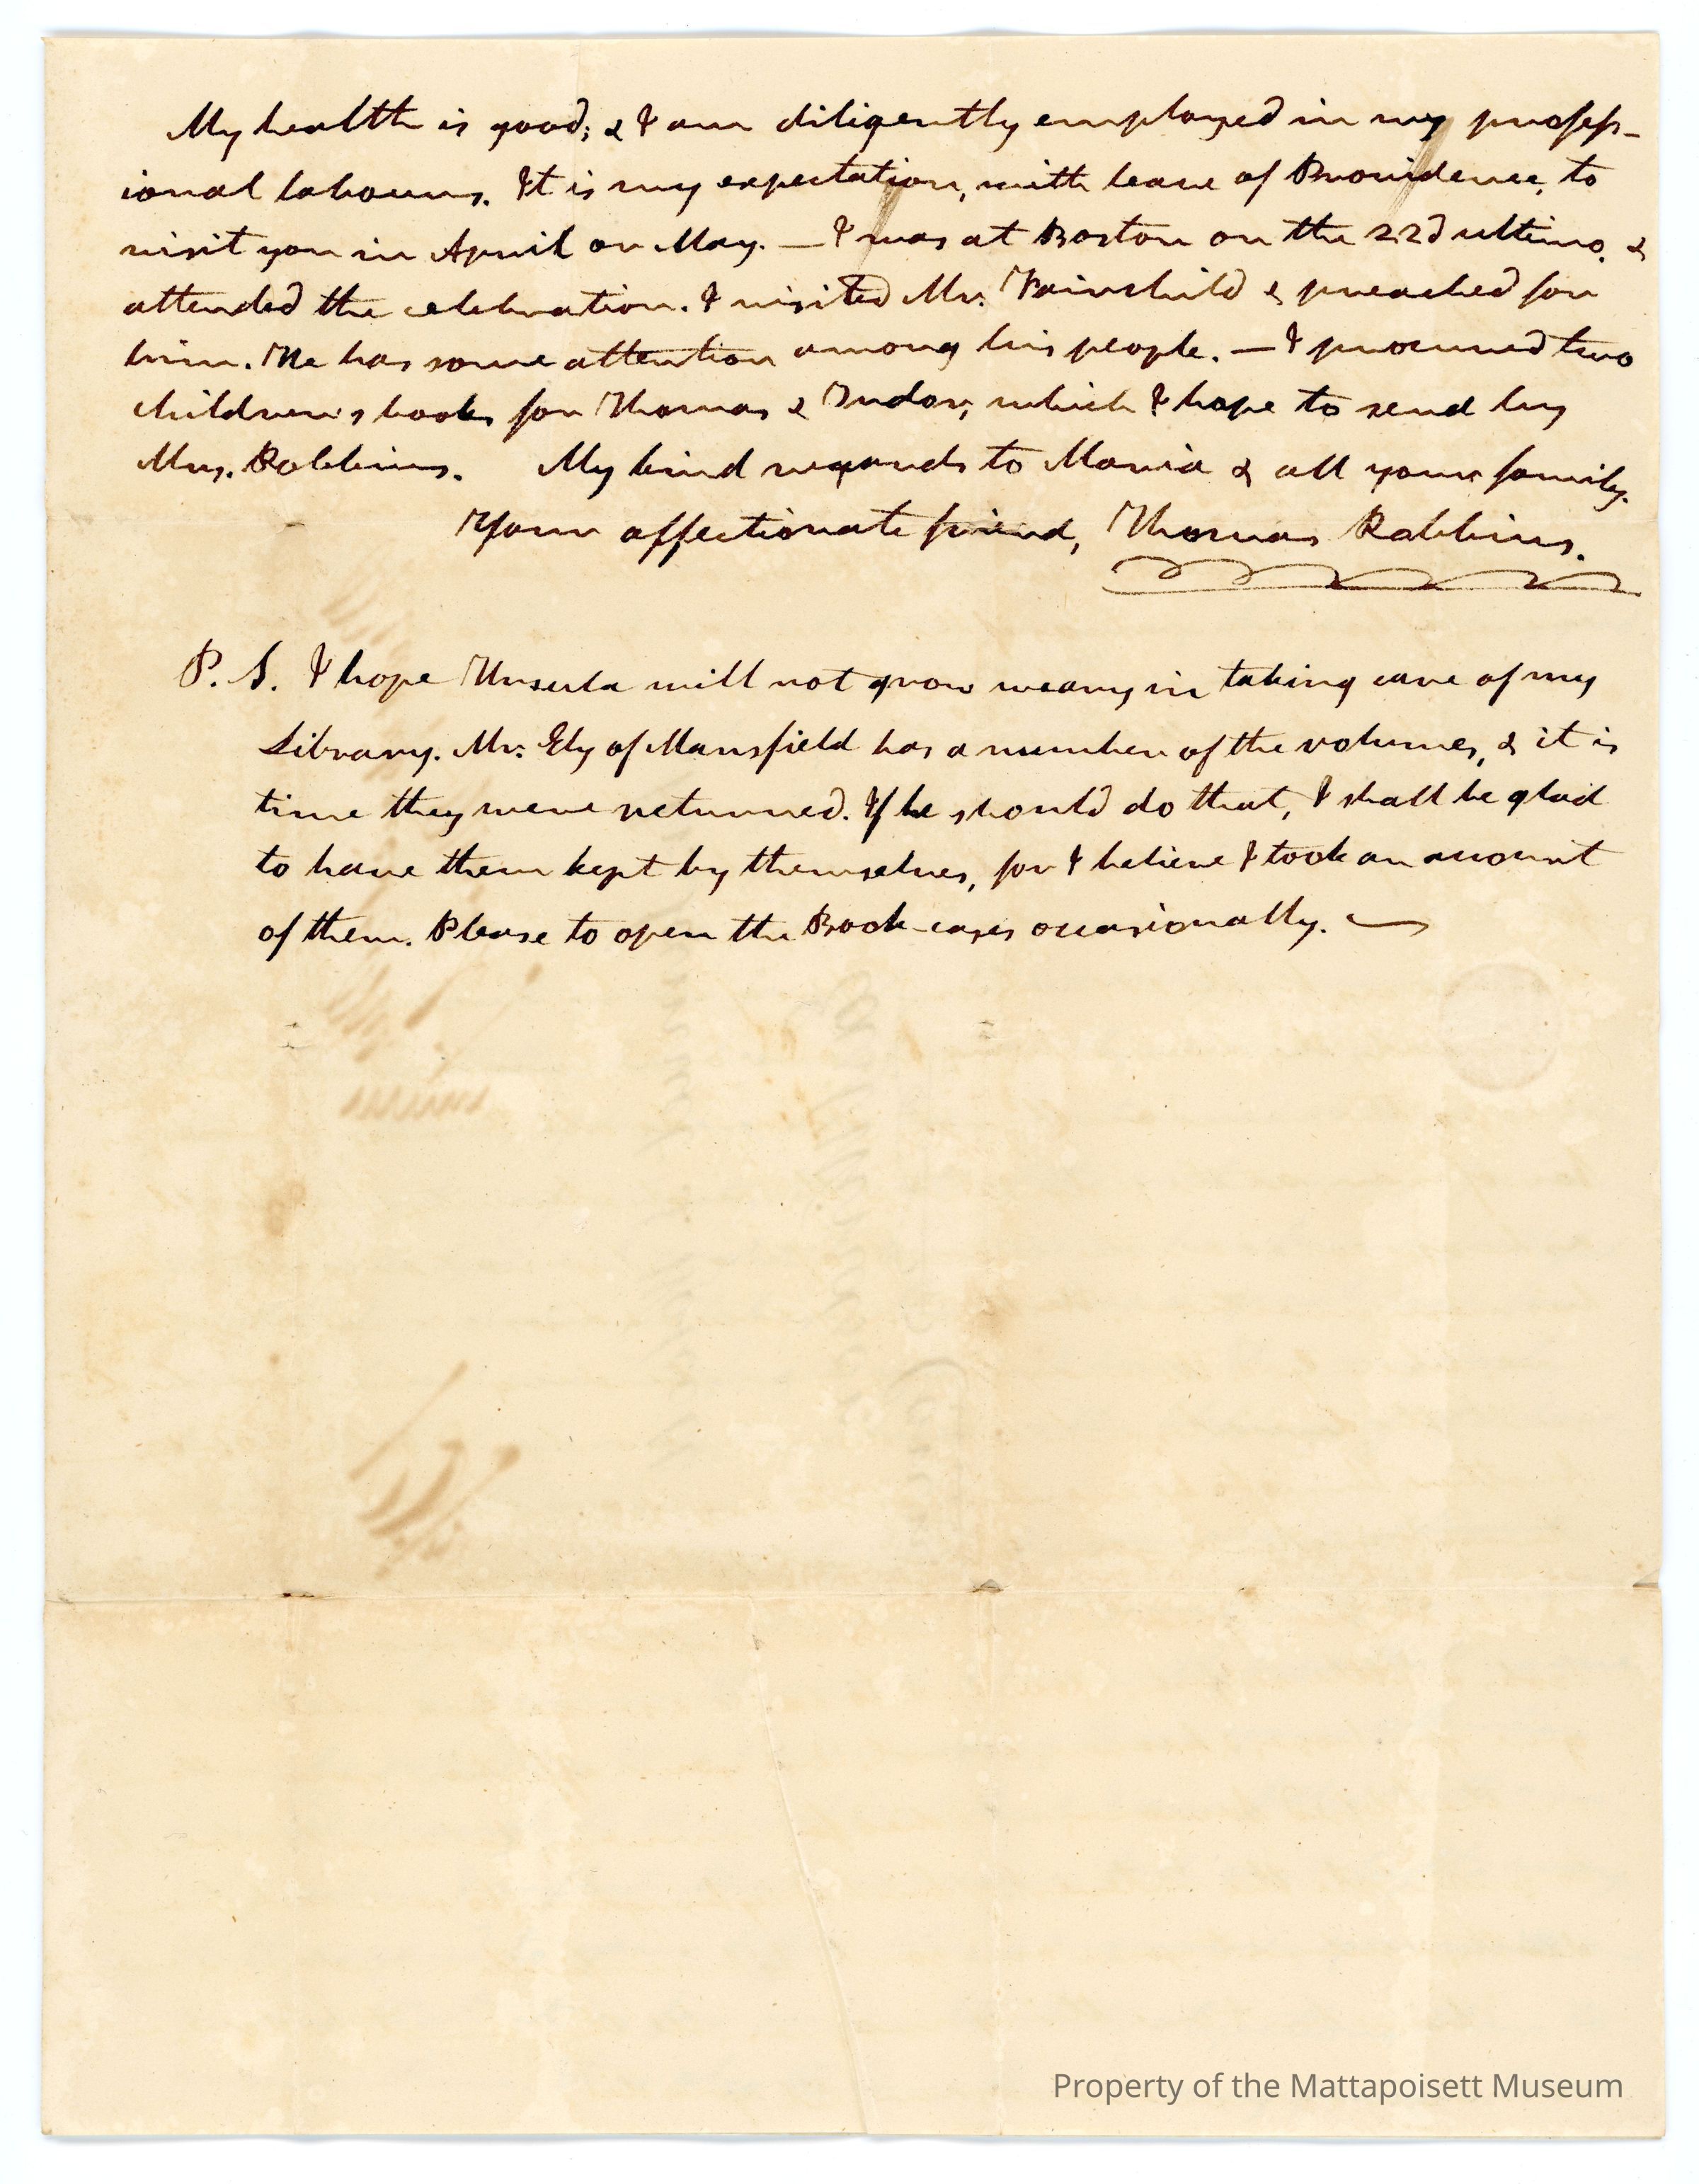 My health is good; & I am diligently employed in my profess-
ional labours. It is my expectation, with leave of Providence, to
visit you in April or May. — I was at Boston on the 22d ultimo, &
attended the celebration. I visited Mr. Fairchild & preached for
him. He has some attention among his people. — I procured two
children's books for Thomas & Tudor, which I hope to send by
Mrs. Robbins. My kind regards to Maria & all your family.
Your affectionate friend, Thomas Robbins.
P. S. I hope Ursula will not grow weary in taking care of my
Library. Mr. Ely of Mansfield has a number of the volumes, & it is
time they were returned. If he should do that, I shall be glad
to have them kept by themselves, for I believe I took an account
of them. Please to open the Book-cases occasionally. —
Property of the Mattapoisett Museum